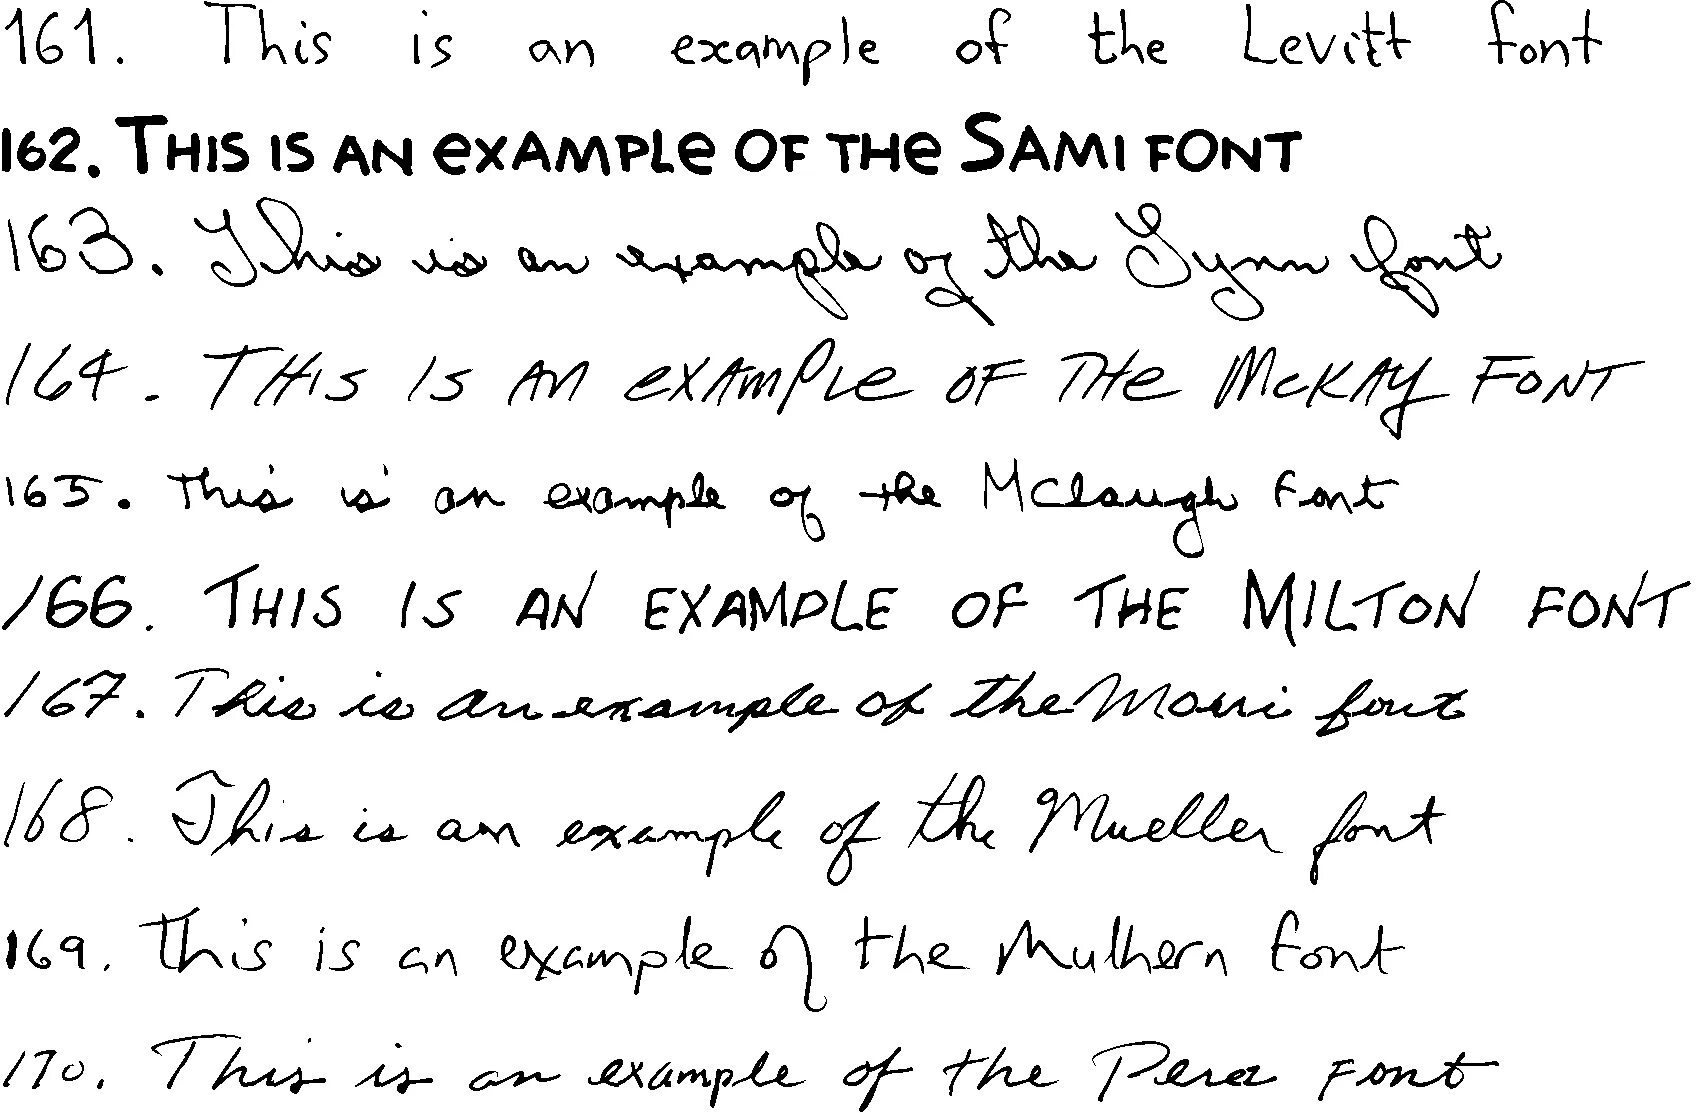 161. This is an example of the Levitt font
162. THIS IS AN eXAMPLe OF THe SAMI FONT
163. This is an example of the Lynn font
164. THIS IS AN eXAMPLe OF THe McKAY FONT
165. This is an example of the McLaugh font
166. THIS IS AN EXAMPLE OF THE MILTON FONT
167. This is an example of the Morri font
168. This is an example of the Mueller font
169. This is an example of the Mulhern font
170. This is an example of the Pera font